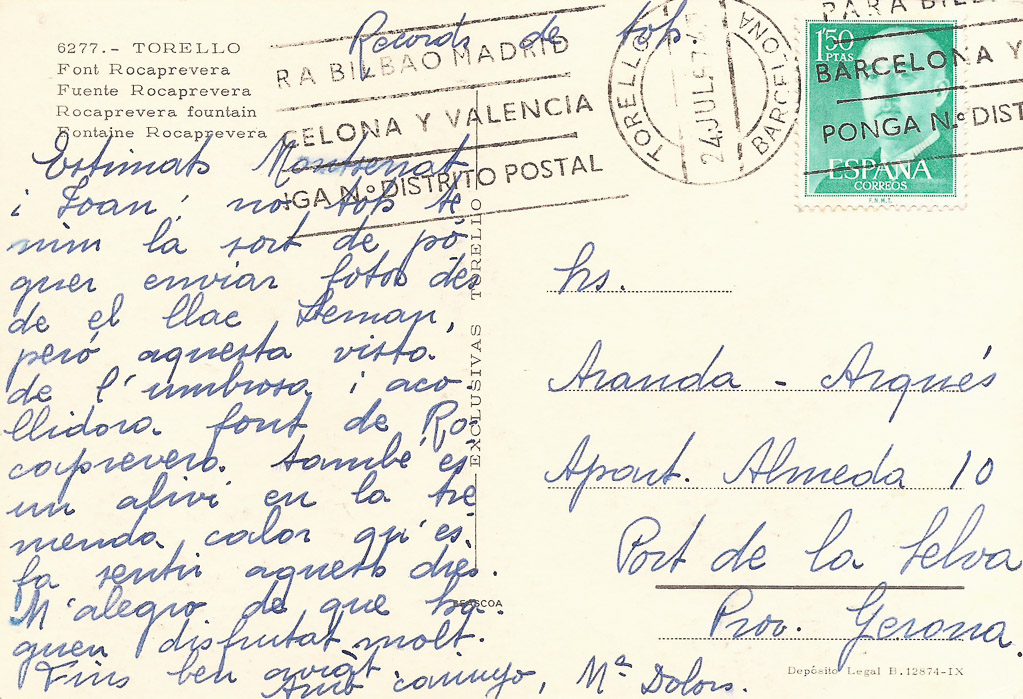 Records de tots
6277.- TORELLO
Font Rocaprevera
Fuente Rocaprevera
Rocaprevera fountain
Fontaine Rocaprevera
RA BILBAO MADRID
CELONA Y VALENCIA
IGA N.º DISTRITO POSTAL
TORELLO
BARCELONA
24 JUL 67
PARA BILB
BARCELONA Y
PONGA N.º DIST
1'50
PTAS
ESPAÑA
CORREOS
F.N.M.T.
Estimats Montserrat
i Joan: no tots te
nim la sort de pô
guer enviar fotos des
de el llac Leman,
peró aquesta vista
de l'umbrosa i aco
llidora font de Ro
caprevera també es
un alivi en la tre
menda calor qu'es
fa sentir aquests dies.
M'alegro de que ha
guen disfrutat molt.
Fins ben aviat
Amb carinyo, Mª Dolors.
EXCLUSIVAS TORELLO
BEASCOA
hs.
Aranda - Arqués
Apart. Almeda 10
Port de la Selva
Prov. Gerona.
Depósito Legal B.12874-IX